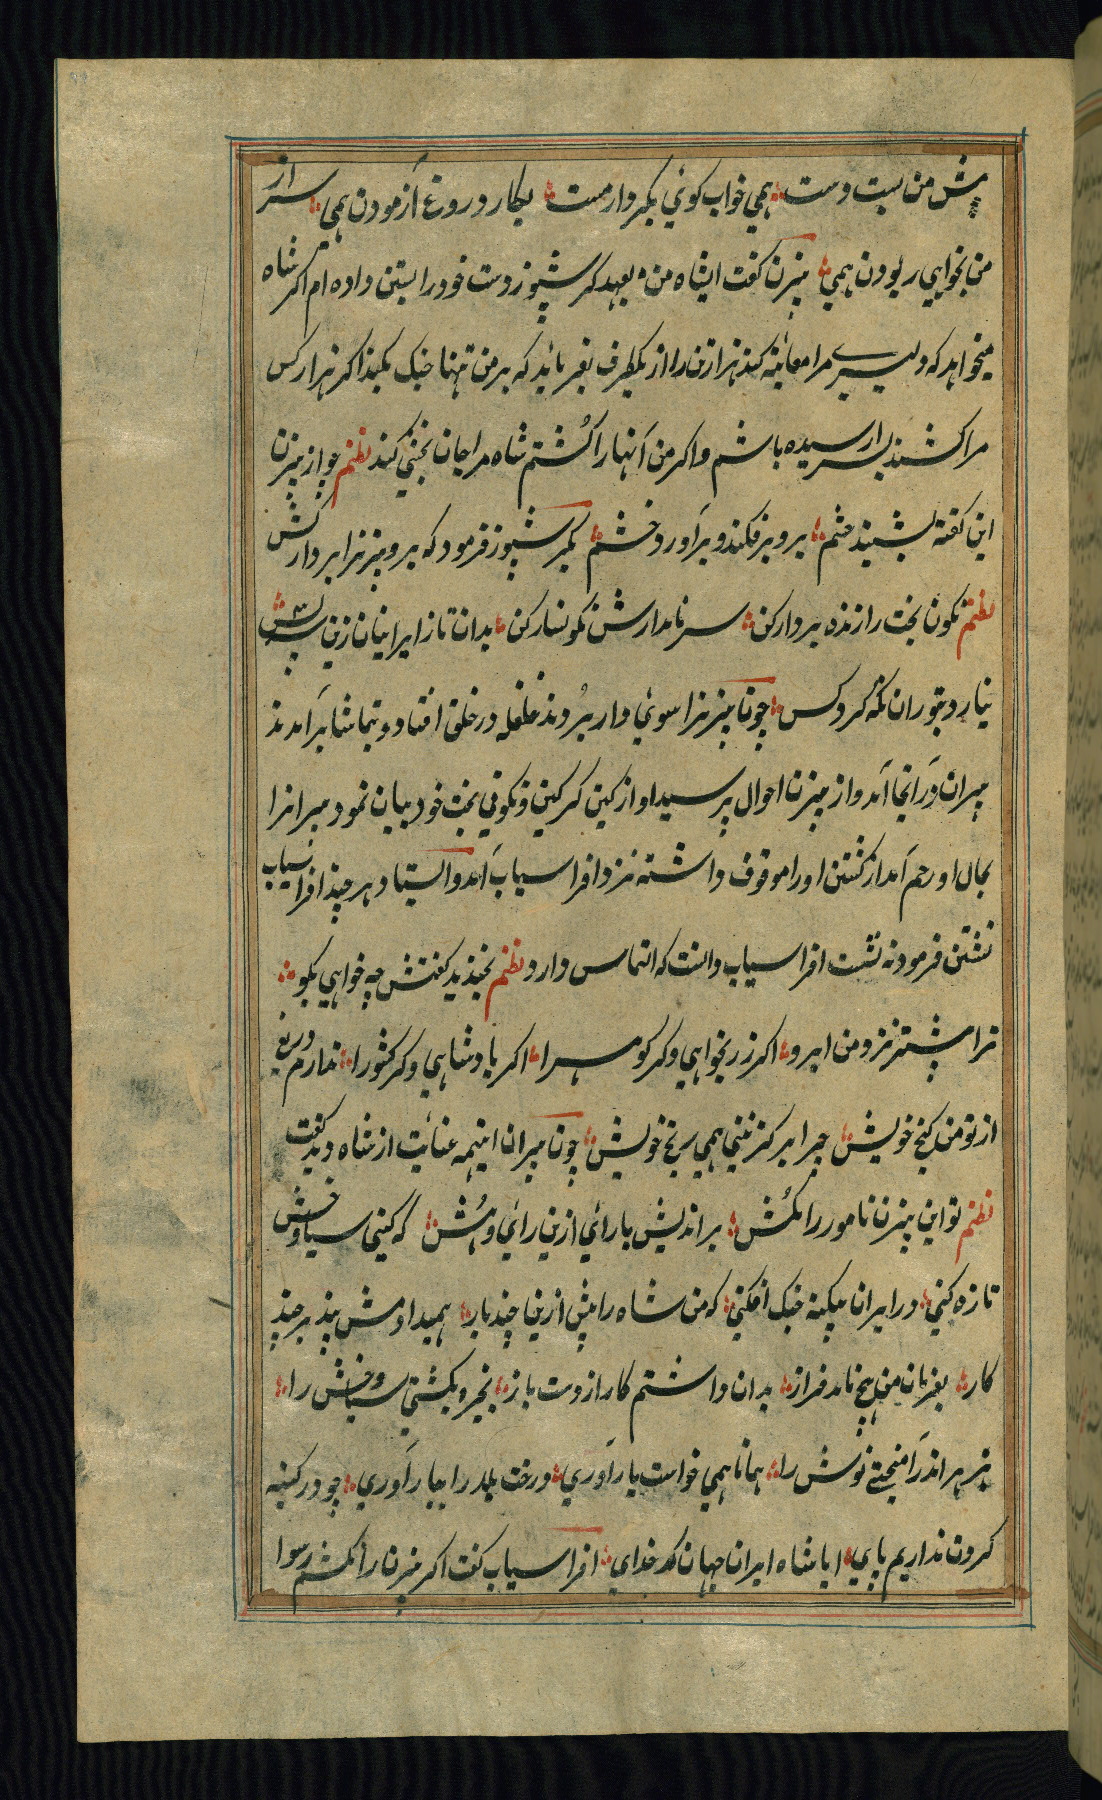 پیش من بست دست همی خواب کوئی بکردار مست بکار دروغ آزمودن همی سر از
من بخواهی ربودن همی بیژن گفت ایشاه من بعهد گرشیوز دست خود را بستن داده ام اگر شاه
میخواهد که دلیری مرا معاینه کند هزار تن را از یکطرف بفرماید که بر من تنها جنک بکنند اگر هزار کس
مرا کشند بسزا رسیده باشم و اگر من آنها را کشتم شاه مرا جان بخشی کند نظم چو از بیژن
این گفته بشنید خشم برو بر فکند و برآورد خشم بگرشیوز فرمود که برو بیژنرا بردار کش
نظم نگون بخت را زنده بردار کن سر نامدارش نگونسار کن بدان تا ز ایرانیان زین سپس
نیارد بتوران نگه کرد کس چون بیژنرا سوی دار بردند غلغله در خلق افتاد و بتماشا برآمدند
پیران در آنجا آمد و از بیژن احوال پرسید او از کین گرگین و نگونی بخت خود بیان نمود پیرانرا
بحال او رحم آمد از کشتن او را موقوف داشته نزد افراسیاب آمد و ایستاد هر چند افراسیاب
نشستن فرمود نه نشست افراسیاب دانست که التماس دارد نظم بخندید گفتش چه خواهی بکو
ترا بیشتر نزد من ابرو اگر زر بخواهی و گر کوهرا اگر پادشاهی و گر کشورا ندارم دریغ
از تو من کنج خویش چرا بر گزینی همی رنج خویش چون پیران اینهمه عنایت از شاه دید گفت
نظم تو این بیژن نامور را مکش براندیش با رای ازین رای و هش که کینی سیاوخش
تازه کنی در ایران بیکینه جنک افکنی که من شاه را پیش ازین چند بار همیدادمش پند بر چند
کار بفرمان من هیچ نامد فراز بدان داشتم کار از دست باز بخیره بکشتی سیاوخش را
بزهر اندر آمیختی نوش را همانا همی خواست یار آوری درخت بلد را ببار آوری چو در کینه
کردن نداریم پای ابا شاه ایران جهان کدخدای افراسیاب گفت اگر بیژن را نکشم رسوا